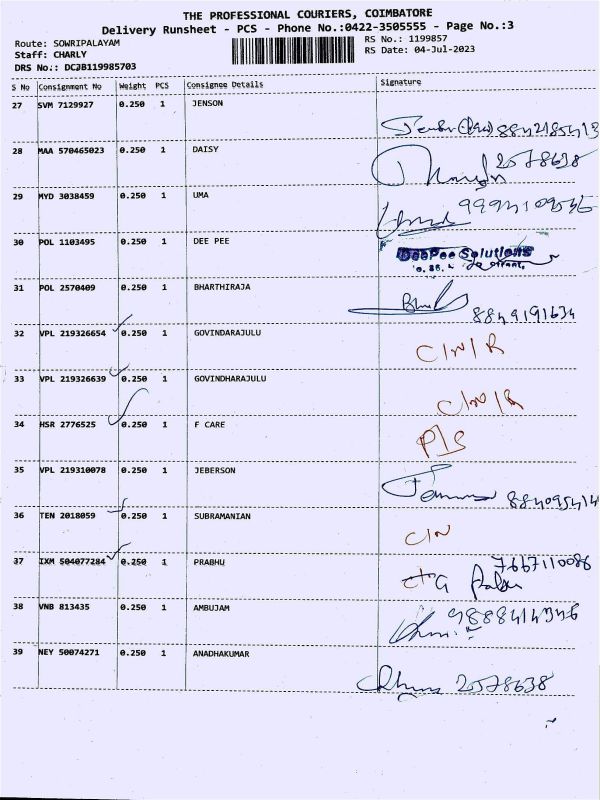 THE PROFESSIONAL COURIERS, COIMBATORE
Delivery Runsheet - PCS - Phone No.:0422-3505555 - Page No.:3
Route: SOWRIPALAYAM
RS No.: 1199857
Staff: CHARLY
RS Date: 04-Jul-2023
DRS No.: DCJB119985703
S No Consignment No Weight PCS Consignee Details Signature
27 SVM 7129927 0.250 1 JENSON
8842185413
28 MAA 570465023 0.250 1 DAISY
2578638
29 MYD 3038459 0.250 1 UMA
30 POL 1103495 0.250 1 DEE PEE
DeePee Solutions
31 POL 2570409 0.250 1 BHARTHIRAJA
8849191634
32 VPL 219326654 0.250 1 GOVINDARAJULU
C/N/R
33 VPL 219326639 0.250 1 GOVINDHARAJULU
C/N/R
34 HSR 2776525 0.250 1 F CARE
P/S
35 VPL 219310078 0.250 1 JEBERSON
36 TEN 2018059 0.250 1 SUBRAMANIAN
C/N
37 IXM 504077284 0.250 1 PRABHU
7667110086
38 VNB 813435 0.250 1 AMBUJAM
9888414346
39 NEY 50074271 0.250 1 ANADHAKUMAR
2578638